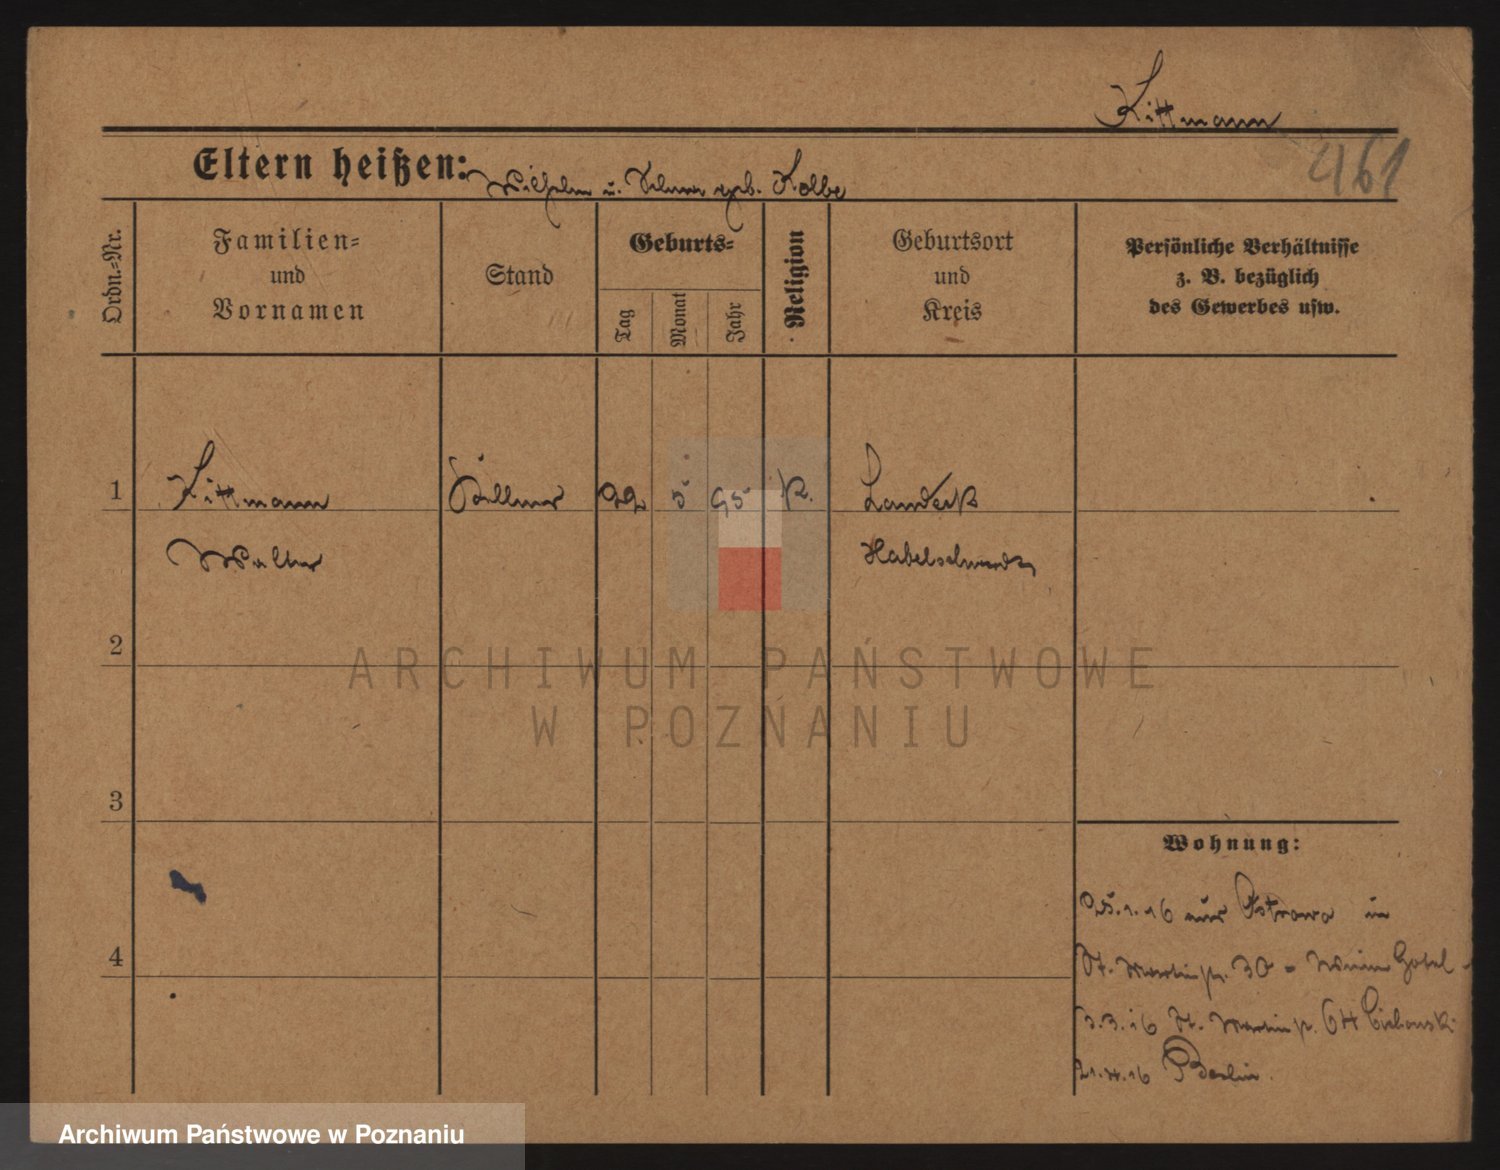 Kittmann
461
Eltern heißen: Wilhelm u. Selma geb. Kolbe
Ordn.-Nr.
Familien-
und
Vornamen
Stand
Geburts-
Tag
Monat
Jahr
Religion
Geburtsort
und
Kreis
Persönliche Verhältnisse
z. B. bezüglich
des Gewerbes usw.
1 Kittmann Kellner 22 5 95 K. Landeck
Walter Habelschwerdt
2
ARCHIWUM PAŃSTWOWE
W POZNANIU
3
Wohnung:
25.1.16 aus Ostrowo in
St. Martinstr. 30 - Wiener Hotel -
4
3.3.16 St. Martinstr. 64
21.4.16 Berlin.
Archiwum Państwowe w Poznaniu